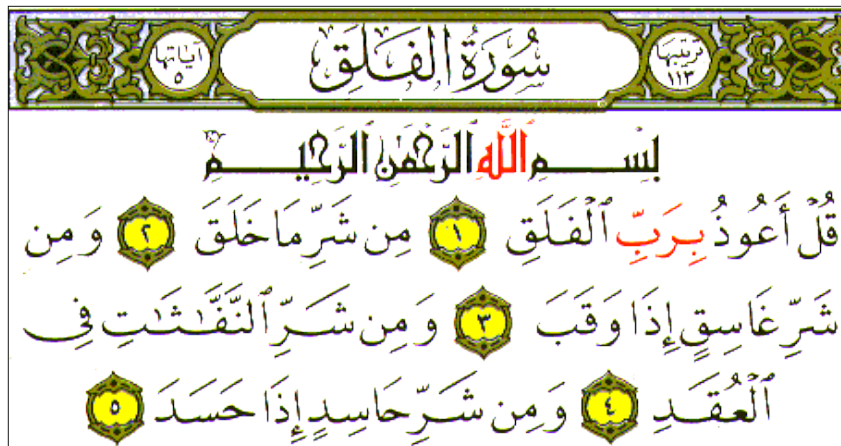 ترتيبها ١١٣ سُورَةُ الفَلَقِ آياتها ٥
بِسْمِ ٱللَّهِ ٱلرَّحْمَٰنِ ٱلرَّحِيمِ
قُلْ أَعُوذُ بِرَبِّ ٱلْفَلَقِ ١ مِن شَرِّ مَا خَلَقَ ٢ وَمِن
شَرِّ غَاسِقٍ إِذَا وَقَبَ ٣ وَمِن شَرِّ ٱلنَّفَّٰثَٰتِ فِى
ٱلْعُقَدِ ٤ وَمِن شَرِّ حَاسِدٍ إِذَا حَسَدَ ٥